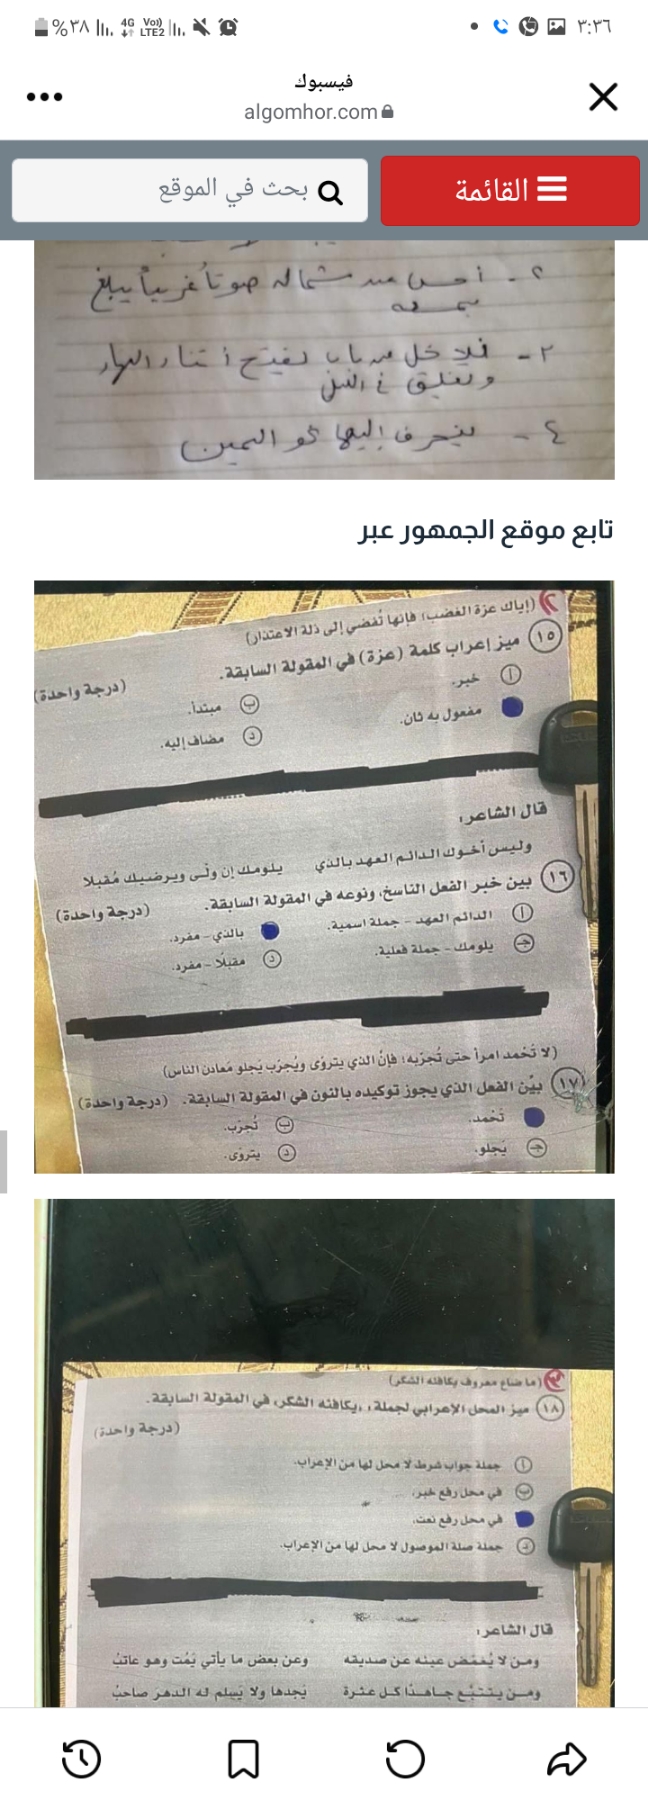 ٣:٣٦
4G
Vo))
LTE2
%٣٨
فيسبوك
algomhor.com
القائمة
بحث في الموقع
٢- أحس عند شماله صوتاً غريباً يبلغ
سمعه
٣-
في الليل
٤- ينحرف إليها نحو اليمين
تابع موقع الجمهور عبر
(إياك عزة الغضب؛ فإنها تُفضي إلى ذلة الاعتذار)
١٥ ميز إعراب كلمة (عزة) في المقولة السابقة.
(درجة واحدة)
أ خبر.
ب مبتدأ.
مفعول به ثان.
د مضاف إليه.
قال الشاعر:
وليس أخوك الدائم العهد بالذي يلومك إن ولّى ويرضيك مُقبلا
١٦ بين خبر الفعل الناسخ، ونوعه في المقولة السابقة.
(درجة واحدة)
أ الدائم العهد - جملة اسمية.
بالذي - مفرد.
ج يلومك - جملة فعلية.
د مقبلًا - مفرد.
(لا تَحْمد امرأ حتى تُجرّبه؛ فإنّ الذي يتروّى ويُجرّب يَجلو مَعادن الناس)
١٧ بيّن الفعل الذي يجوز توكيده بالنون في المقولة السابقة. (درجة واحدة)
تَحْمد.
ب تُجرّب.
ج يَجلو.
د يتروّى.
(ما ضاع معروف يكافئه الشكر)
١٨ ميز المحل الإعرابي لجملة، «يكافئه الشكر» في المقولة السابقة.
(درجة واحدة)
أ جملة جواب شرط لا محل لها من الإعراب.
ب في محل رفع خبر.
في محل رفع نعت.
د جملة صلة الموصول لا محل لها من الإعراب.
قال الشاعر:
ومن لا يُغمّض عينه عن صديقه وعن بعض ما يأتي يَمُت وهو عاتبُ
ومن يتتبّع جاهدًا كل عثرة يَجدها ولا يَسلم له الدهرَ صاحبُ